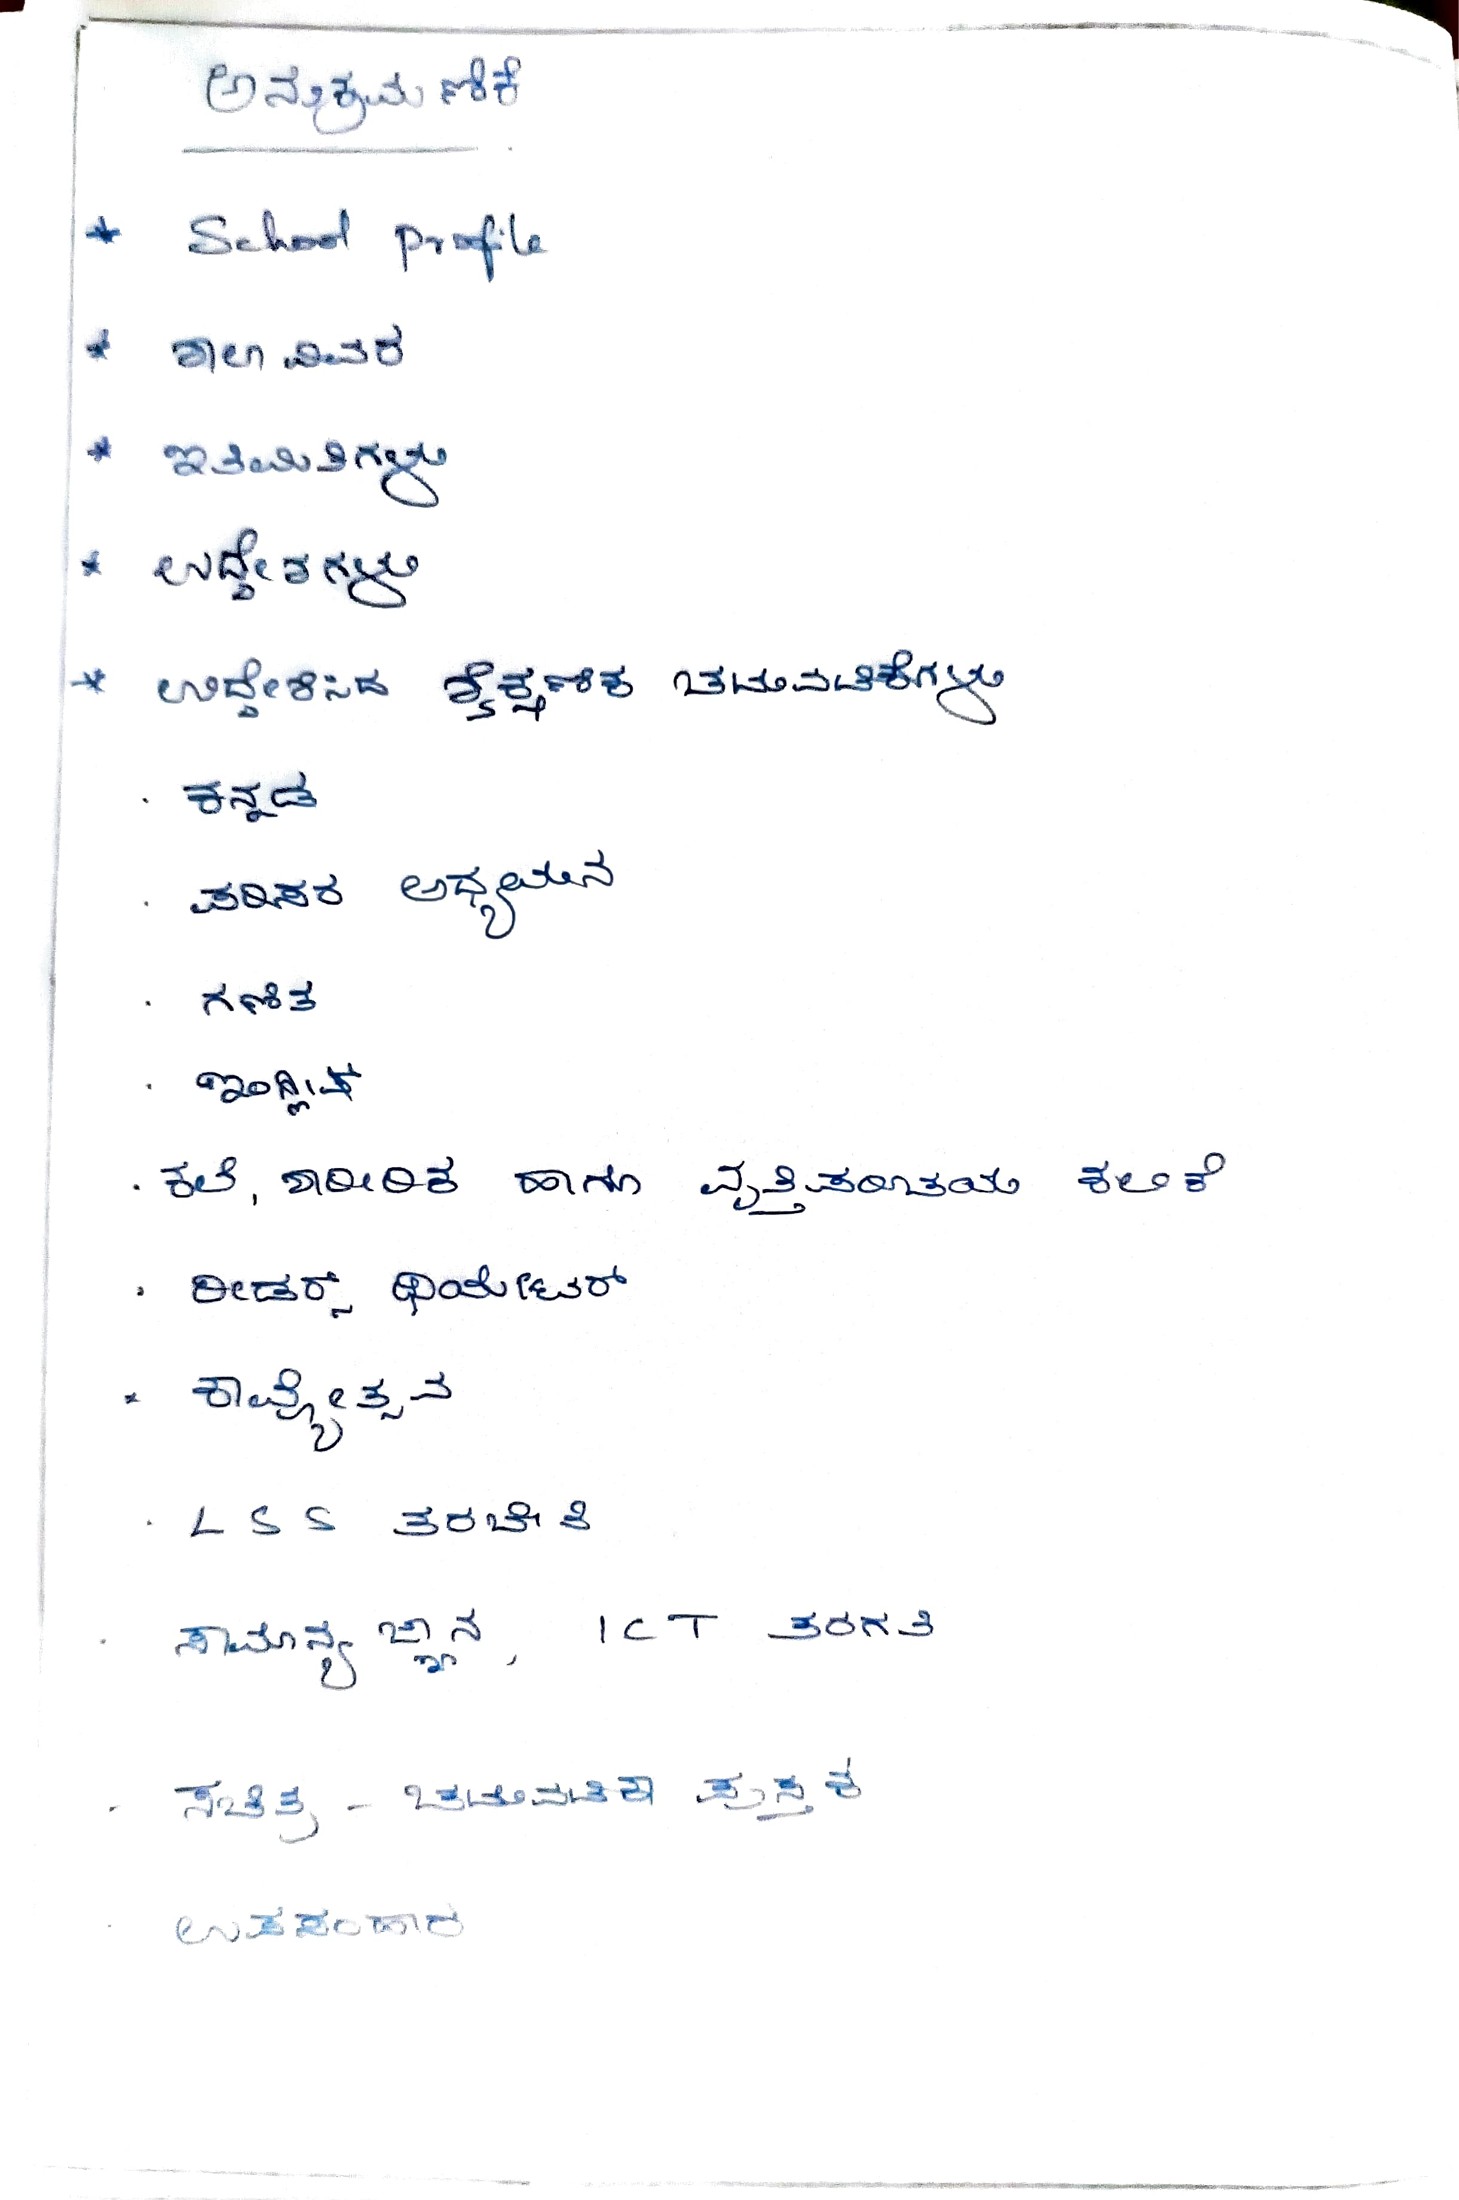 ಅನುಕ್ರಮಣಿಕೆ
* School profile
* ಶಾಲಾ ವಿವರ
* ಇತಿಮಿತಿಗಳು
* ಉದ್ದೇಶಗಳು
* ಉದ್ದೇಶಿಸಿದ ಶೈಕ್ಷಣಿಕ ಚಟುವಟಿಕೆಗಳು
· ಕನ್ನಡ
· ಪರಿಸರ ಅಧ್ಯಯನ
· ಗಣಿತ
· ಇಂಗ್ಲೀಷ್
· ಕಲೆ, ಶಾರೀರಿಕ ಹಾಗೂ ವೃತ್ತಿಪರಿಚಯ ಕಲಿಕೆ
· ರೀಡರ್ಸ್ ಥಿಯೇಟರ್
* ಕಾವ್ಯೋತ್ಸವ
· LSS ತರಬೇತಿ
· ಸಾಮಾನ್ಯ ಜ್ಞಾನ, ICT ತರಗತಿ
· ಸಚಿತ್ರ - ಚಟುವಟಿಕಾ ಪುಸ್ತಕ
· ಉಪಸಂಹಾರ